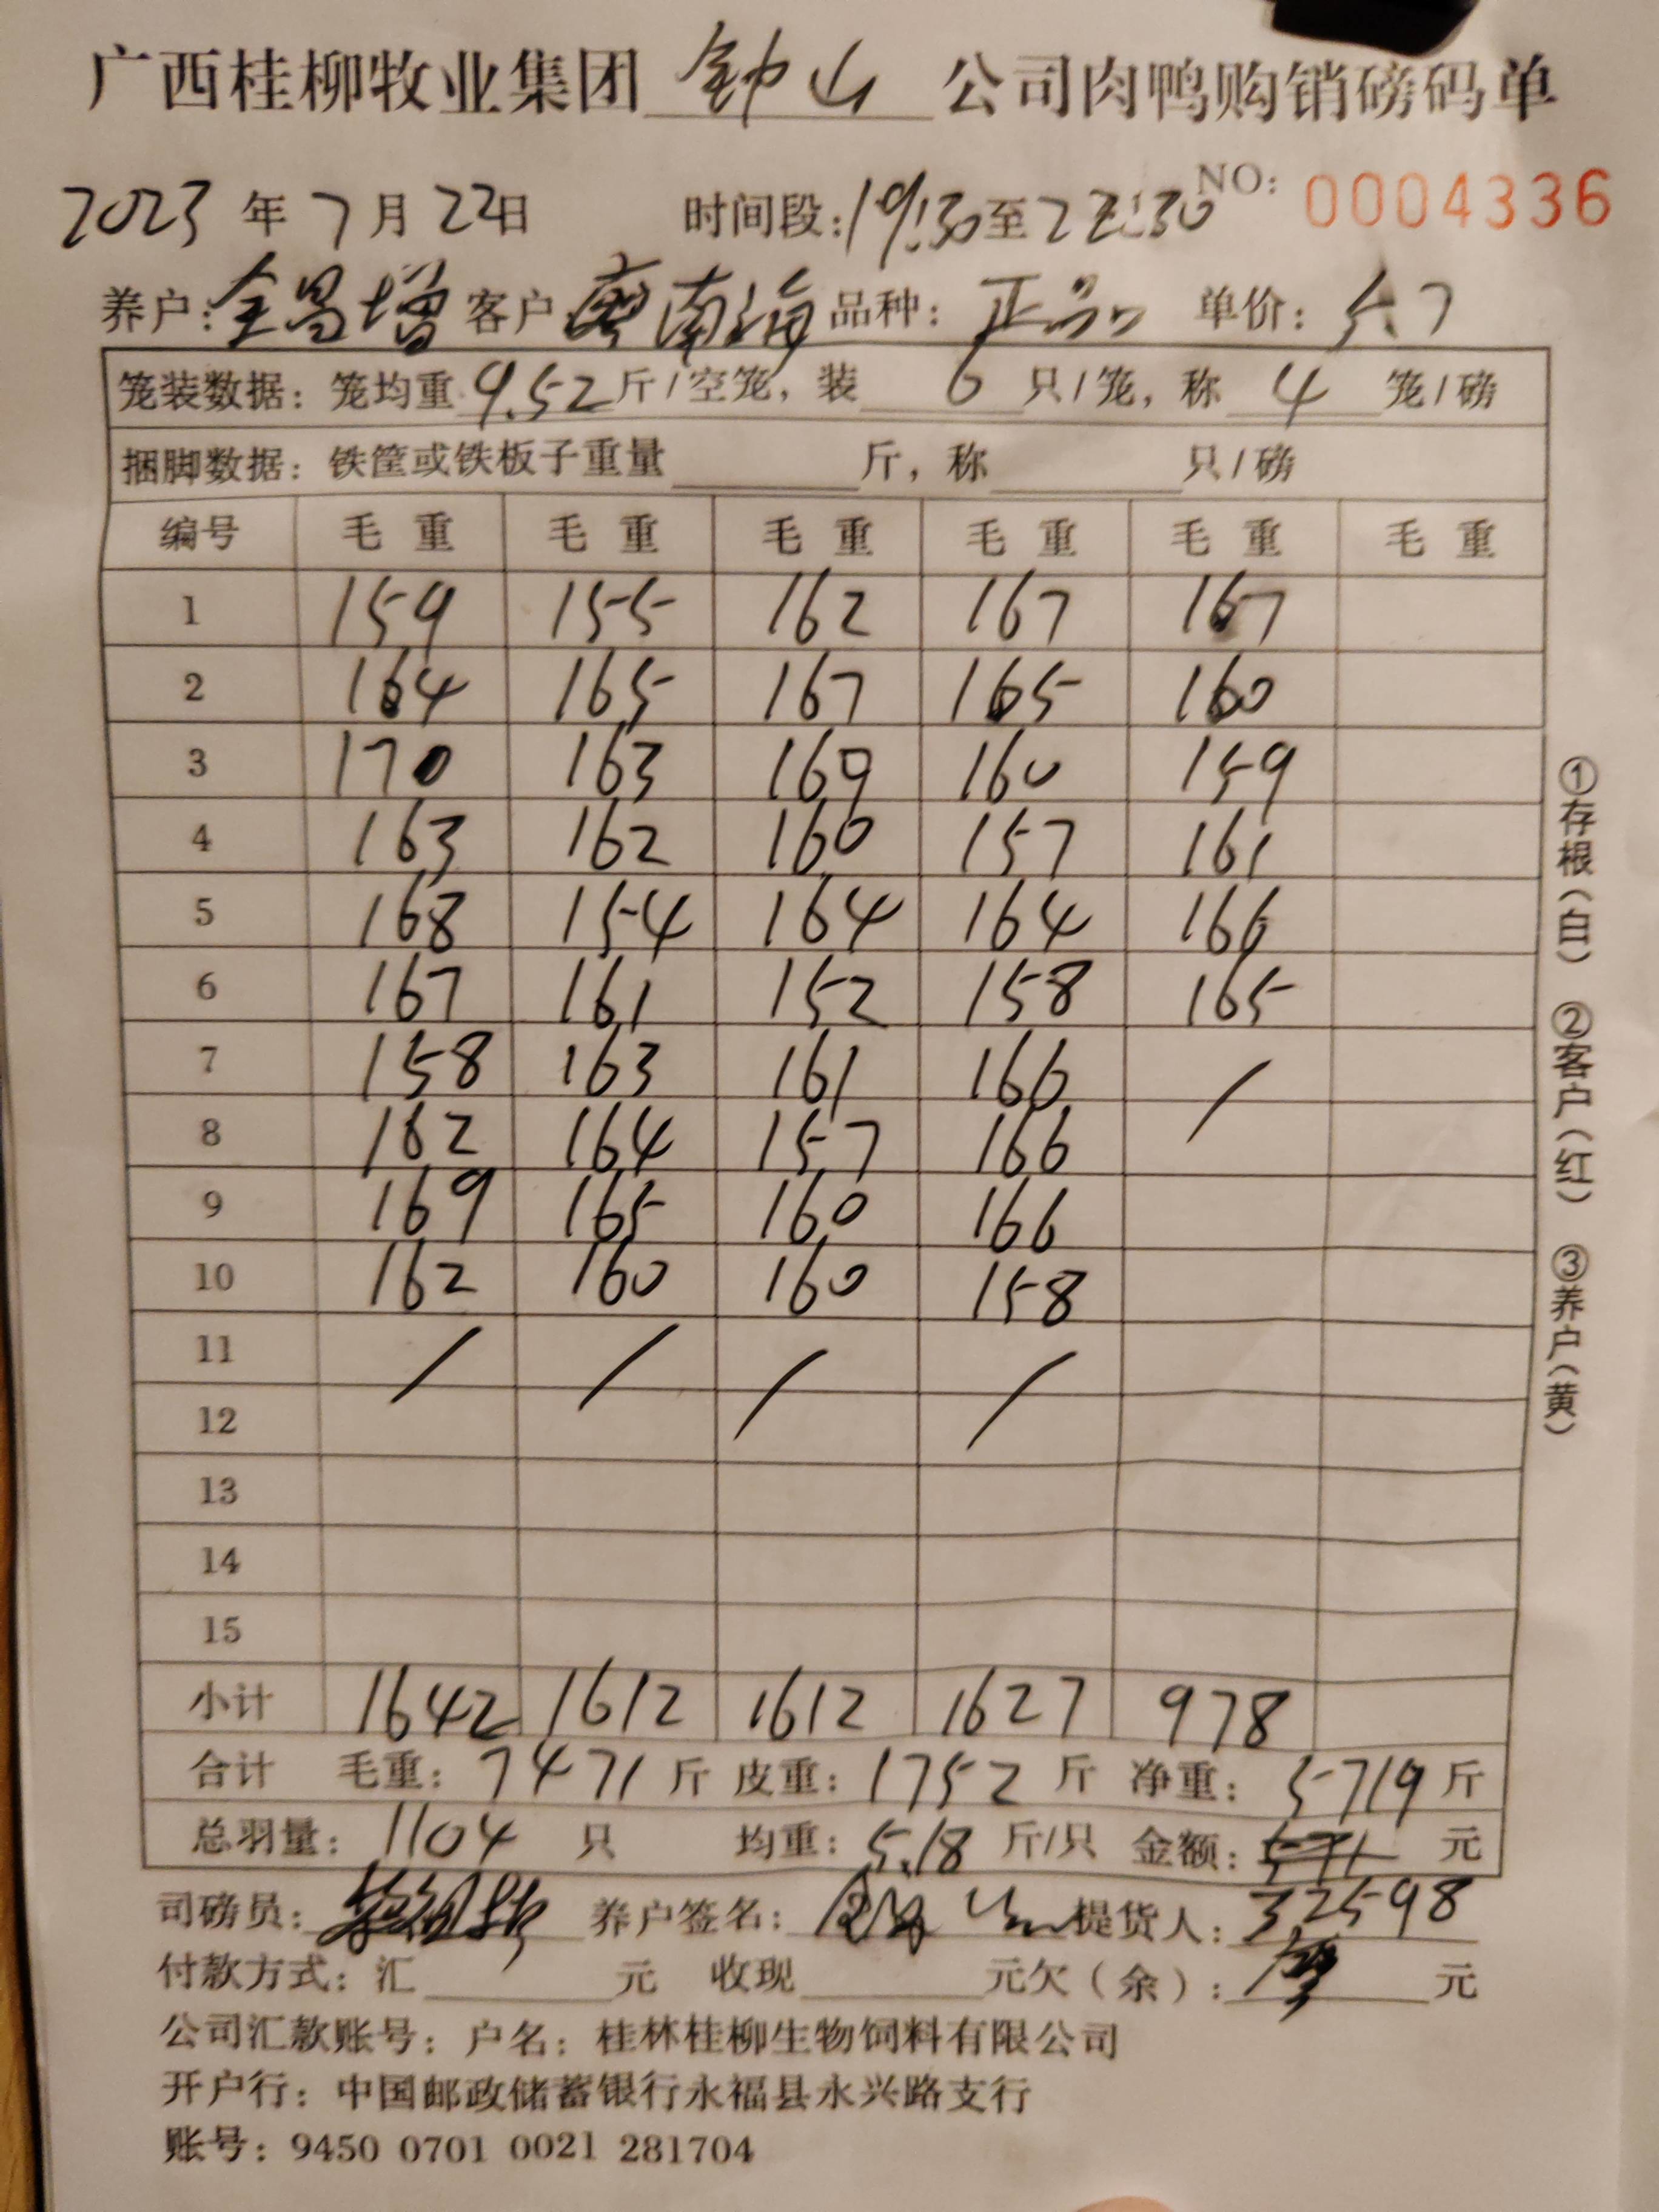 广西桂柳牧业集团 钟山 公司肉鸭购销磅码单
2023 年 7 月 22 日 时间段: 19:30 至 22:30 NO: 0004336
养户: 全昌增 客户 廖南海 品种: 正品 单价: 5.7
笼装数据: 笼均重 9.52 斤/空笼, 装 6 只/笼, 称 4 笼/磅
捆脚数据: 铁筐或铁板子重量 斤, 称 只/磅
编号 毛重 毛重 毛重 毛重 毛重 毛重
1 159 155 162 167 167
2 164 165 167 165 160
3 170 163 169 160 159
4 163 162 160 157 161
5 168 154 164 164 166
6 167 161 152 158 165
7 158 163 161 166 /
8 162 164 157 166
9 169 165 160 166
10 162 160 160 158
11 / / / /
12
13
14
15
小计 1642 1612 1612 1627 978
合计 毛重: 7471 斤 皮重: 1752 斤 净重: 5719 斤
总羽量: 1104 只 均重: 5.18 斤/只 金额: 元
司磅员: 养户签名: 提货人: 32598
付款方式: 汇 元 收现 元欠(余): 廖 元
公司汇款账号: 户名: 桂林桂柳生物饲料有限公司
开户行: 中国邮政储蓄银行永福县永兴路支行
账号: 9450 0701 0021 281704
①存根(白) ②客户(红) ③养户(黄)